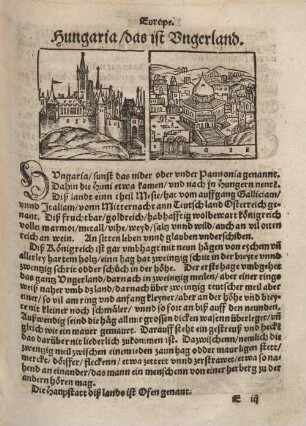 Europe.
Hungaria/das ist Vngerland.
HVngaria/sunst das nider oder vnder Pannonia genannt.
Dahin die Huni etwa kamen/vnd nach jn Hungern nent.
Diß landt einn theil Mysie/hat vom auffgang Galliciam/
vnnd Italiam/vonn Mitternacht ann Teutschland Osterreich ge-
nant. Diß fruchtbar/goldreich/habhafftig wolbewart königreich
voller marmor/metall/vihe/weyd/saltz vnnd wild/auch an vil orten
reich an wein. An sitten leben vnnd glauben vnderschiden.
Diß Königreich ist gar vmbhagt mit neun hägen von eychem vnd
allerley harten holtz/sinn hag hat zwentzig schrit in der breyte vnnd
zwentzig schrit odder schüch in der höhe. Der erste hage vmbgehet
das gantz Vngerland/darnach in zweintzig meilen/aber einer rings
weiß naher vmb dz land/darnach über zwentzig teutscher meil aber
einer/so vil am ring vnd anfang kleyner/aber an der höhe vnd breyte
nit kleiner noch schmäler/vnnd so fort an biß auff den neunden.
Außwendig seind die häg allmit grossen dicken wasen überleget/vn
gleich wie ein maur gemaurt. Darauff steht ein gestreuß vnd hecke
das darüber nit liederlich zukommen ist. Dazwischenn/nemlich die
zwentzig meil zwischen einem jeden zaun hag odder maurligen stett/
merckt/dörffer/flecken/etwa zettert vnnd zerstrawet/etwa so na-
hend an einander/das mann ein menschen von einer herberg zu der
andern hören mag.
Die Hauptstatt diß lands ist Ofen genant.
E iij